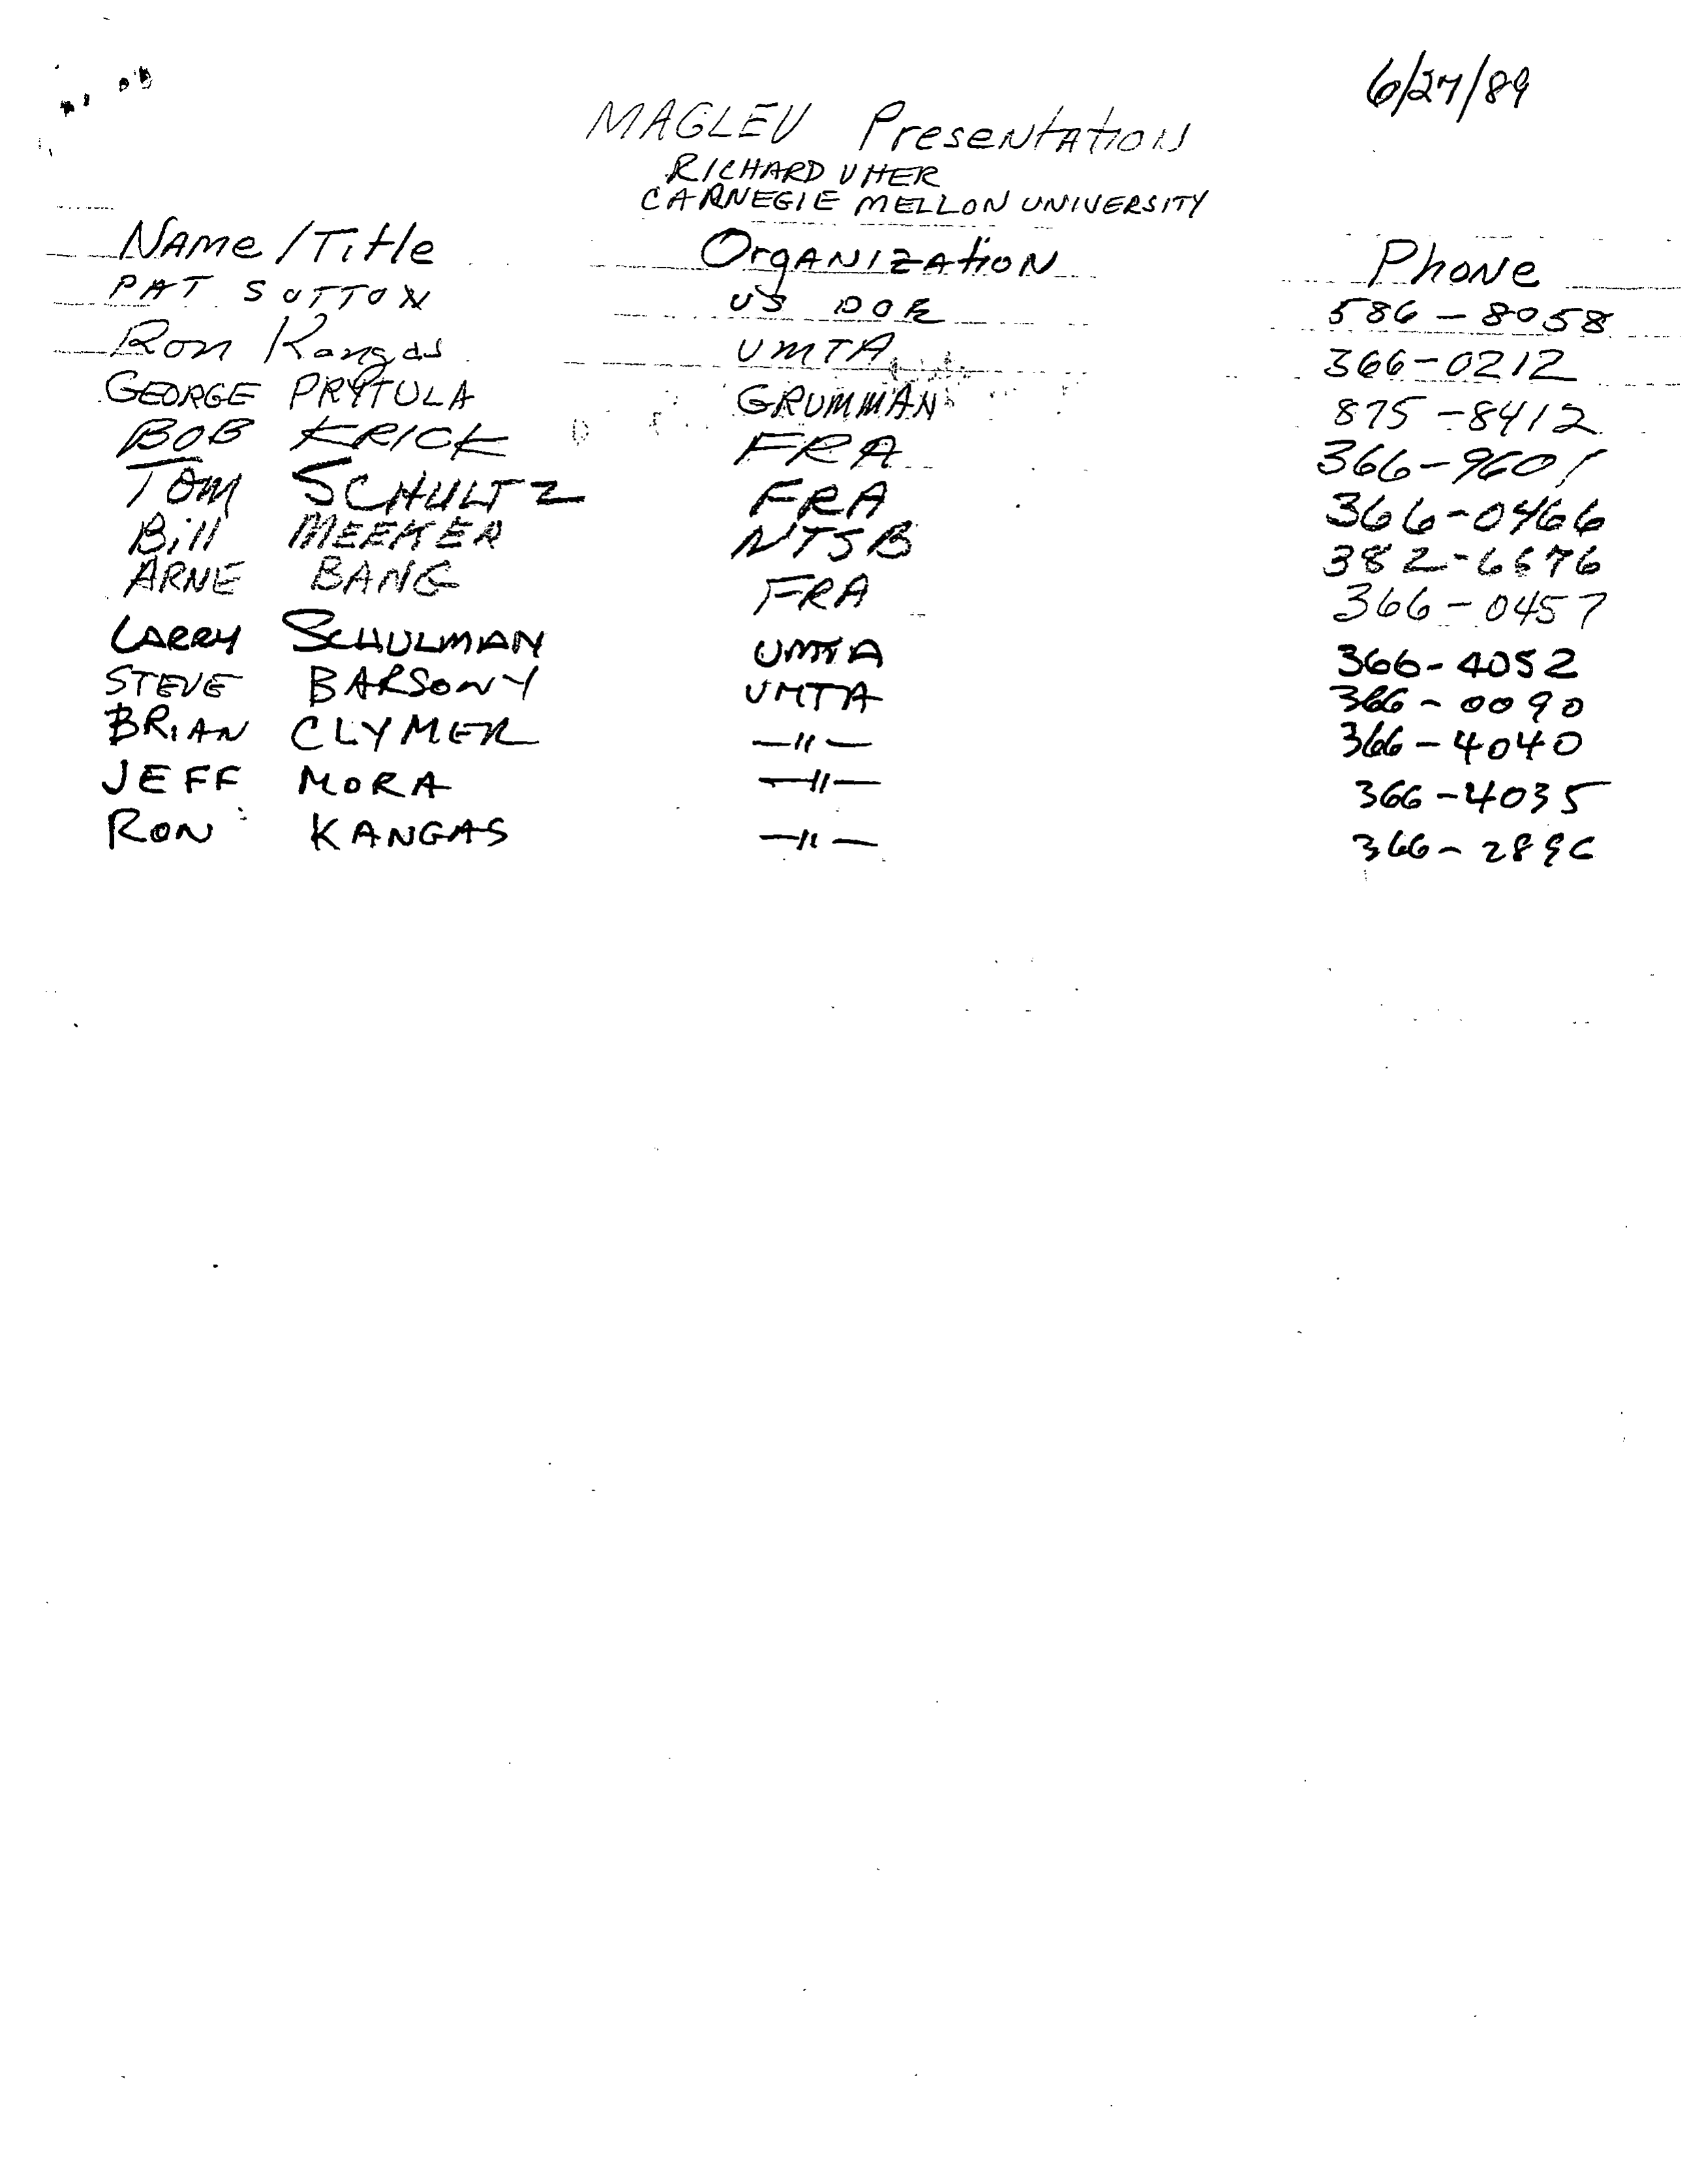 6/27/89
MAGLEV Presentation
RICHARD UHER
CARNEGIE MELLON UNIVERSITY
Name/Title Organization Phone
PAT SUTTON US DOE 586-8058
Ron Kangas UMTA 366-0212
GEORGE PRYTULA GRUMMAN 875-8412
BOB KRICK FRA 366-9601
TOM SCHULTZ FRA 366-0466
Bill MEEKER NTSB 382-6676
ARNE BANG FRA 366-0457
LARRY SCHULMAN UMTA 366-4052
STEVE BARSONY UMTA 366-0090
BRIAN CLYMER —"— 366-4040
JEFF MORA —"— 366-4035
RON KANGAS —"— 366-2896